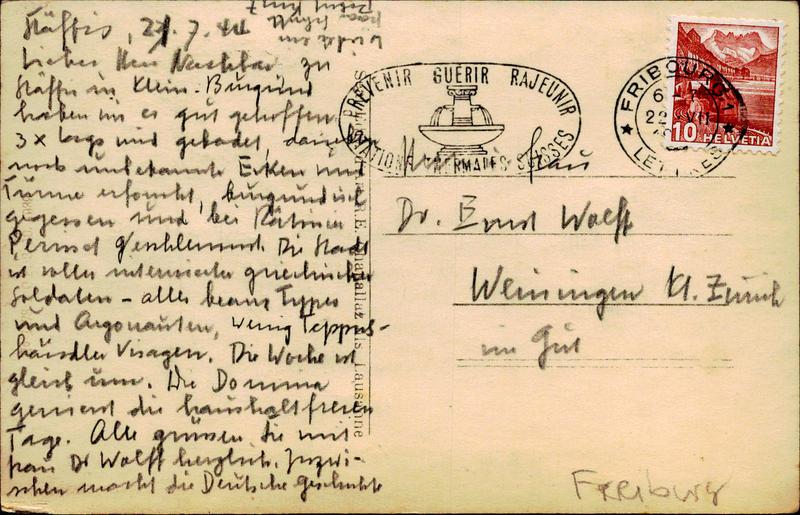 Stäffis, 21.7.44
Lieber Herr Nachbar zu
Stäffis in Klein-Burgund
haben wir es gut getroffen
3x tags und gebadet, daneben
noch unbekannte Ecken und
Türme erforscht, burgundisch
gegessen und bei
geschlemmt. Die Stadt
ist voller internierter griechischer
Soldaten – alles beaux Types
und Argonauten, wenig Teppich-
händler Visagen. Die Woche ist
gleich um. Die Domina
geniesst die haushaltfreien
Tage. Alle grüssen Sie und
Frau Dr Wolff herzlich. Inzwi-
schen macht die Deutsche Geschichte
PREVENIR GUERIR RAJEUNIR
STATIONS THERMALES SUISSES
FRIBOURG 1
22 VII
LETTRES
10 HELVETIA
Herrn Frau
Dr. Ernst Wolff
Weiningen Kt. Zürich
im Gut
Lausanne
Freiburg